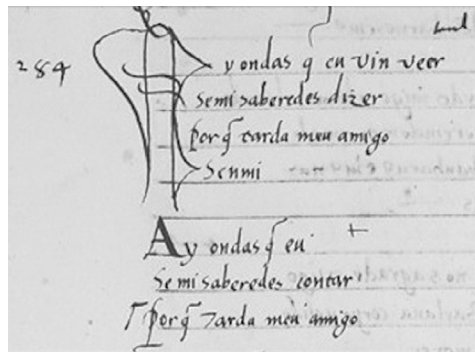 284
Ay ondas q̃ eu vin veer
semi saberedes dizer
porq̃ tarda meu amigo
Senmi
Ay ondas q̃ eu
Semi saberedes contar
porq̃ tarda meu amigo